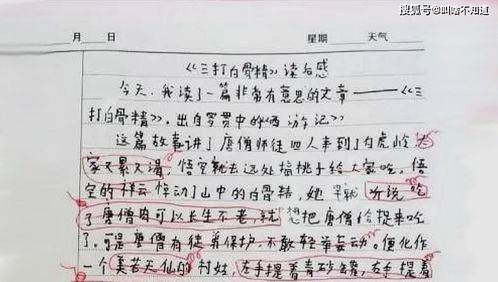 搜狐号@叫啥不知道
月 日 星期 天气
《三打白骨精》读后感
今天，我读了一篇非常有意思的文章——《三
打白骨精》，出自罗贯中的《西游记》
这篇故事讲了唐僧师徒四人来到了白虎岭，大
家又累又渴，悟空就去远处摘桃子给大家吃。悟
空的祥云惊动了山中的白骨精，她早就听说吃
了唐僧肉可以长生不老，就想把唐僧给捉来吃
了，可是唐僧有徒弟保护，不敢轻举妄动。便化作
一个美若天仙的村姑，左手提着青砂罐，右手提着